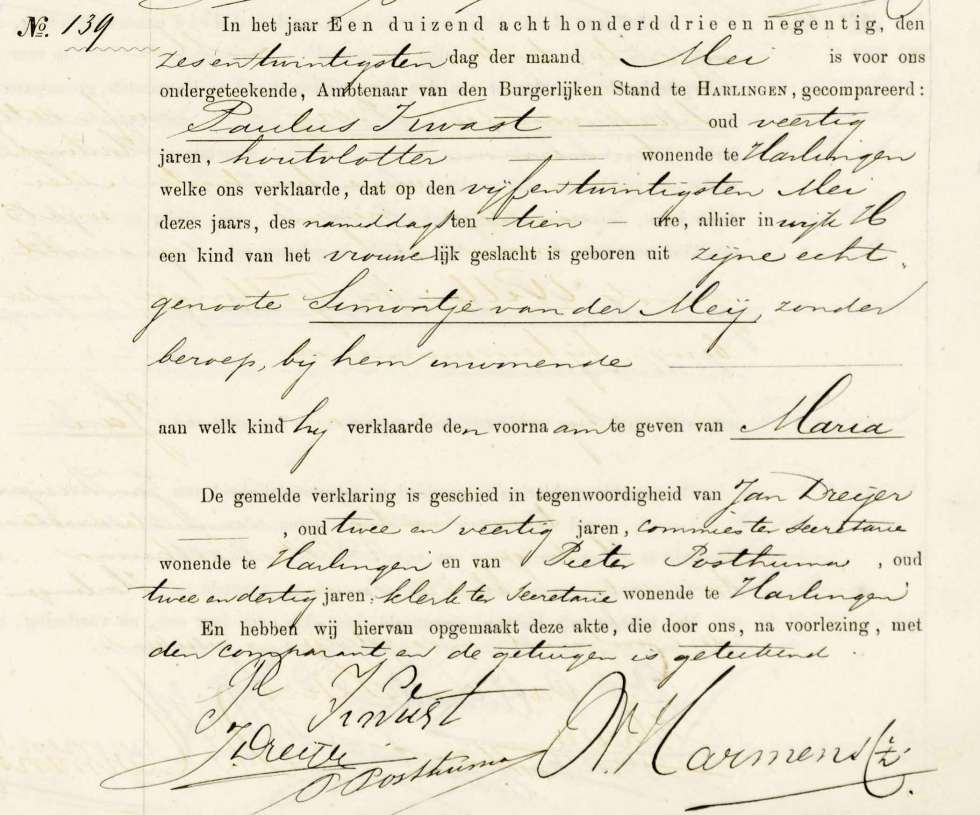 No. 139
In het jaar Een duizend acht honderd drie en negentig, den
zesentwintigsten dag der maand Mei is voor ons
ondergeteekende, Ambtenaar van den Burgerlijken Stand te HARLINGEN, gecompareerd:
Paulus Kwast oud veertig
jaren, houtvlotter wonende te Harlingen
welke ons verklaarde, dat op den vijfentwintigsten Mei
dezes jaars, des namiddags ten tien ure, alhier in wijk H
een kind van het vrouwelijk geslacht is geboren uit zijne echt-
genoote Simontje van der Meij, zonder
beroep, bij hem inwonende
aan welk kind hij verklaarde den voornaam te geven van Maria
De gemelde verklaring is geschied in tegenwoordigheid van Jan Dreijer
, oud twee en veertig jaren, commies ter secretarie
wonende te Harlingen en van Pieter Posthuma, oud
twee en dertig jaren, klerk ter secretarie wonende te Harlingen
En hebben wij hiervan opgemaakt deze akte, die door ons, na voorlezing, met
den comparant en de getuigen is geteekend.
P Kwast
J. Dreijer
P Posthuma
Harmens